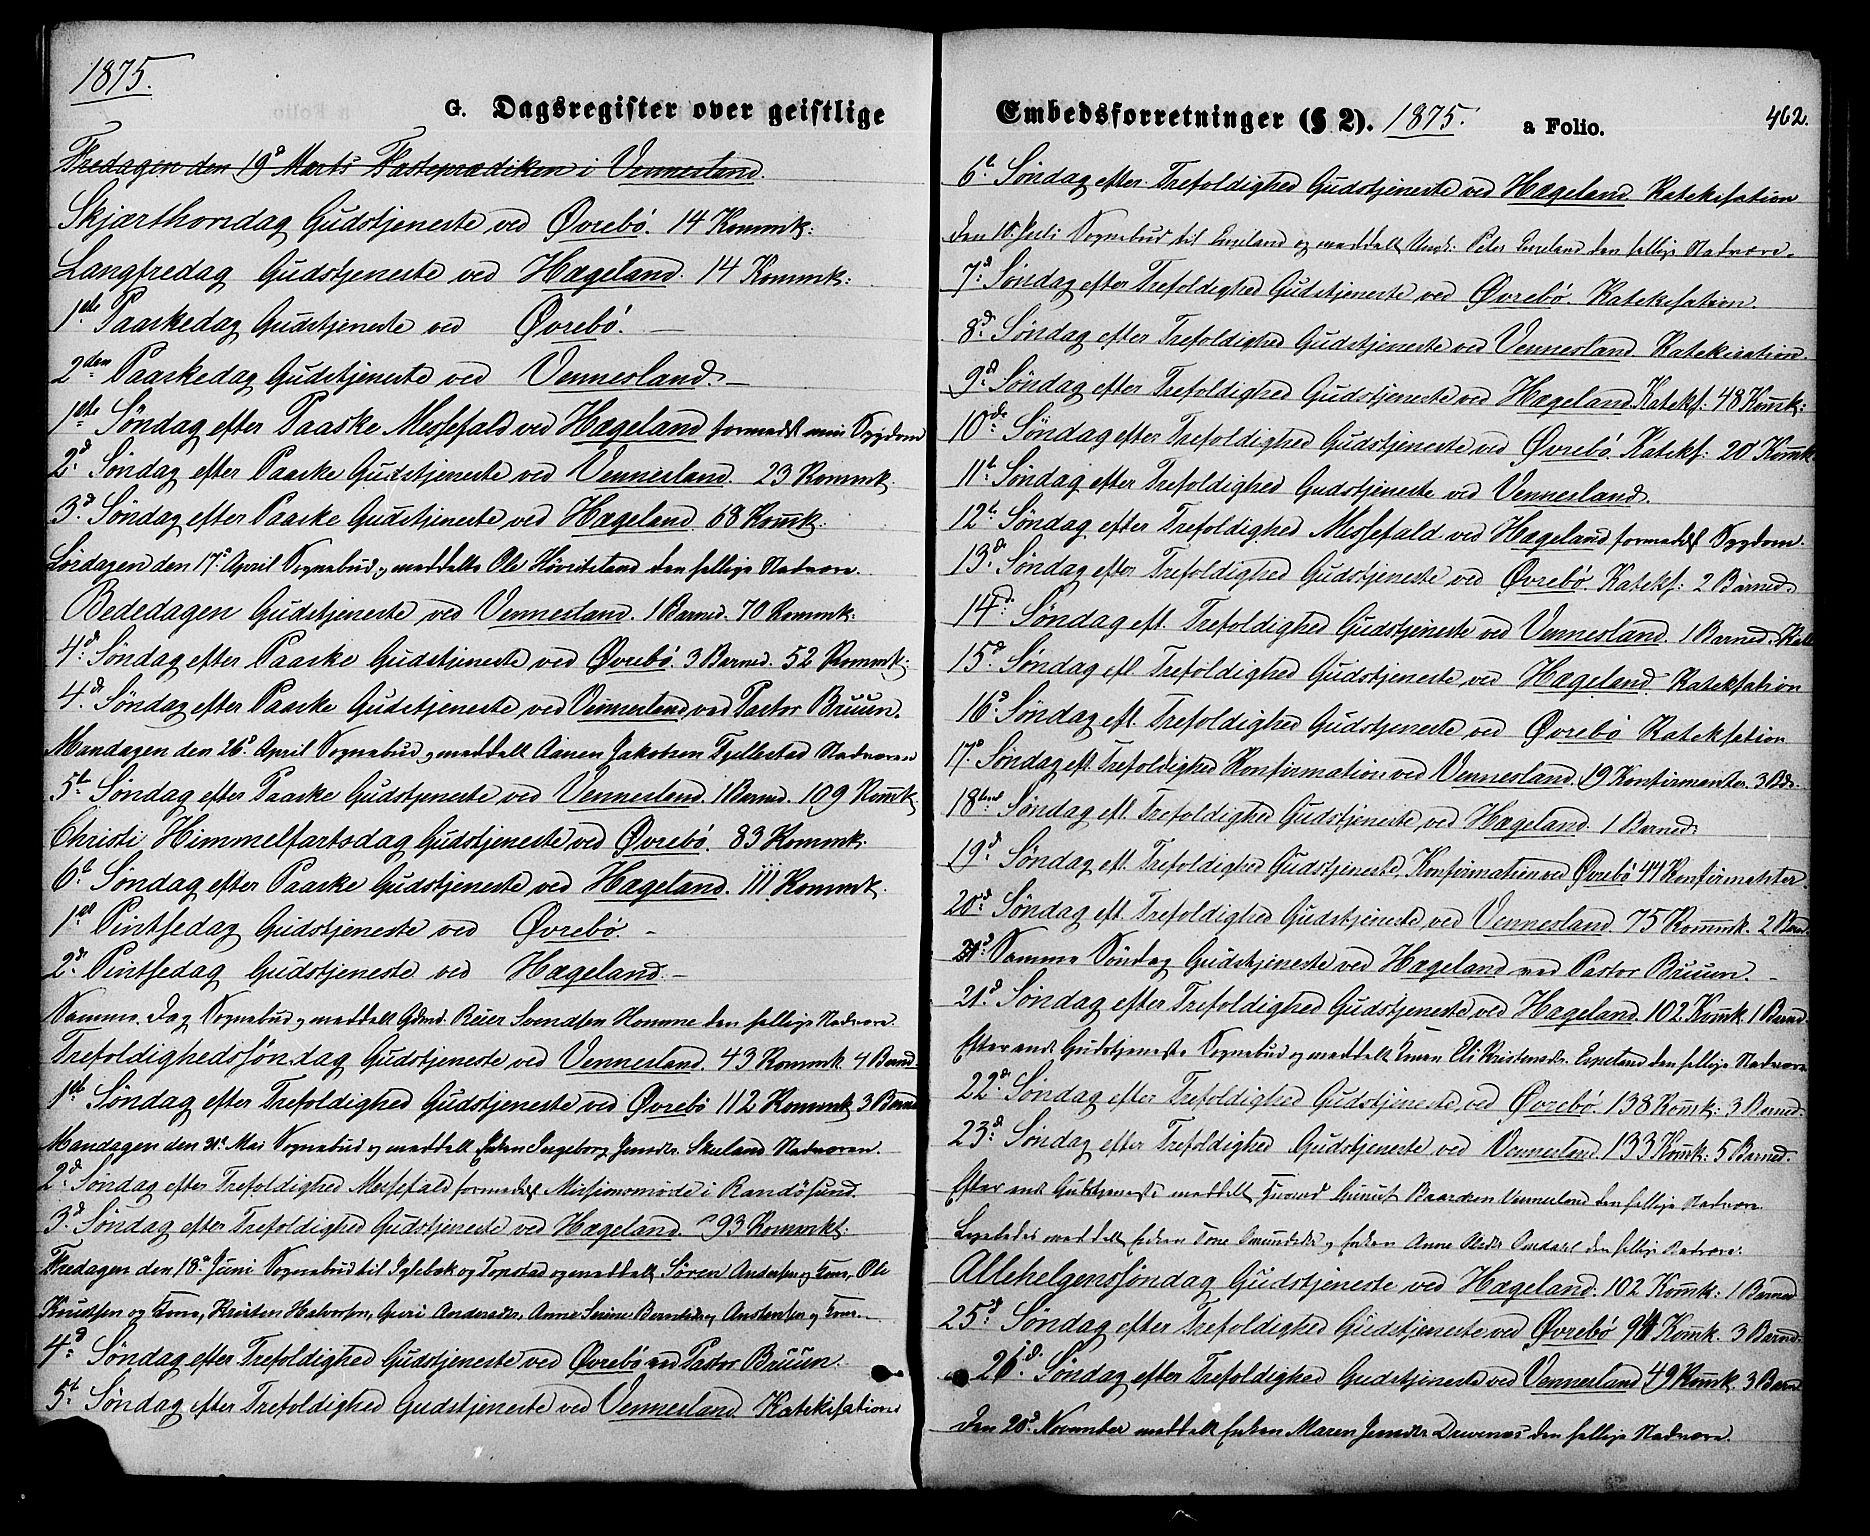 1875.
G. Dagsregister over geistlige
Fredagen den 19d Marts Fasteprædiken i Vennesland.
Skjærthorsdag Gudstjeneste ved Øvrebö. 14 Kommk:
Langfredag Gudstjeneste ved Hægeland. 14 Kommk:
1ste Paaskedag Gudstjeneste ved Øvrebö. —
2den Paaskedag Gudstjeneste ved Vennesland. —
1ste Söndag efter Paaske Messefald ved Hægeland formedelst min Sygdom
2d Söndag efter Paaske Gudstjeneste ved Vennesland. 23 Kommk.
3d Söndag efter Paaske Gudstjeneste ved Hægeland 68 Komk.
Lördagen den 17d April Sognebud og meddelte Ole den hellige Nadvere.
Bededagen Gudstjeneste ved Vennesland. 1 Barned. 70 Kommk:
4d Söndag efter Paaske Gudstjeneste ved Øvrebö 3 Barned. 52 Kommk:
4d Söndag efter Paaske Gudstjeneste ved Vennesland ved Pastor Bruun.
Mandagen den 26d April Sognebud og meddelt Aanen Jakobsen Fjellestad Nadveren
5t Söndag efter Paaske Gudstjeneste ved Vennesland. 1 Barned. 109 Komk.
Christi Himmelfartsdag Gudstjeneste ved Øvrebö. 83 Kommk.
6t Söndag efter Paaske Gudstjeneste ved Hægeland. 111 Kommk.
1st Pintsedag Gudstjeneste ved Øvrebö. -
2d Pintsedag Gudstjeneste ved Hægeland. -
Samme Dag Sognebud og meddelt Gdmd. Reier Svendsen Homme den hellige Nadvere.
Trefoldighedssöndag Gudstjeneste ved Vennesland. 43 Kommk. 4 Barned.
1st Söndag efter Trefoldighed Gudstjeneste ved Øvrebö 112 Kommk 3 Barned
Mandagen den 31t Mai Sognebud og meddelt Enken Ingeborg Jensdr. Skuland Nadveren.
2d Söndag efter Trefoldighed Messefald formedelst Missionsmöde i Randösund.
3d Söndag efter Trefoldighed Gudstjeneste ved Hægeland. 93 Kommkt.
Fredagen den 18d Juni Sognebud til Iglebæk og Topstad og meddelt Sören Andersen og Kone, Ole
Knudsen og Kone, Kristen Halvorsen, Guri Andersdr, Anne Serine Berntsdr og Kone.—
4d Söndag efter Trefoldighed Gudstjeneste ved Øvrebö ved Pastor Bruun.
5t Söndag efter Trefoldighed Gudstjeneste ved Vennesland. Katekisation
Embedsforretninger (§ 2). 1875. a Folio. 462.
6t Söndag efter Trefoldighed Gudstjeneste ved Hægeland. Katekisation
Den 10d Juli Sognebud til og meddelt Peter den hellige Nadvere.
7d Söndag efter Trefoldighed Gudstjeneste ved Øvrebö. Katekisation.
8d Söndag efter Trefoldighed Gudstjeneste ved Vennesland Katekisation.
9d Söndag efter Trefoldighed Gudstjeneste ved Hægeland. Katekf: 48 Komk:
10de Söndag efter Trefoldighed Gudstjeneste ved Øvrebö. Katekf: 20 Komk
11t Söndag efter Trefoldighed Gudstjeneste ved Vennesland.
12t Söndag efter Trefoldighed Messefald ved Hægeland formedelst Sygdom.
13d Söndag efter Trefoldighed Gudstjeneste ved Øvrebö. Katekf: 2 Barned.
14d Söndag eft. Trefoldighed Gudstjeneste ved Vennesland. 1 Barned. Kat
15d Söndag eft Trefoldighed Gudstjeneste ved Hægeland Kateksation
16d Söndag eft. Trefoldighed Gudstjeneste ved Øvrebö Kateksation
17d Söndag eft. Trefoldighed Konfirmation ved Vennesland. 19 Konfirmenter. 3 Bd.
18tend Söndag eft. Trefoldighed Gudstjeneste ved Hægeland. 1 Barned.
19d Söndag eft. Trefoldighed Gudstjeneste, Konfirmation ved Øvrebö 41 Konfirmanter.
20d Söndag eft. Trefoldighed Gudstjeneste ved Vennesland. 75 Kommk. 2 Barned
Samme Söndag Gudstjeneste ved Hægeland ved Pastor Bruun. -
21d Söndag efter Trefoldighed Gudstjeneste ved Hægeland. 102 Komk. 1 Barned.
Efter endt Gudstjeneste Sognebud og meddelt Eli Kristensdr. Espetand den hellige Nadvere
22d Söndag efter Trefoldighed Gudstjeneste ved Øvrebö. 138 Komk: 3 Barned.
23d Söndag efter Trefoldighed Gudstjeneste ved Vennesland. 133 Komk: 5 Barned.
Efter endt Gudstjeneste meddelt Gunuf Baardsen Vennesland den hellige Nadvere.
Ligeledes meddelt Enken Tone og Enken Anne den hellige Nadvere.
Allehelgenssöndag Gudstjeneste ved Hægeland. 102 Komk: 1 Barned
25d Söndag efter Trefoldighed Gudstjeneste ved Øvrebö 94 Komk. 3 Barned.
26d Söndag efter Trefoldighed Gudstjeneste ved Vennesland 49 Komk. 3 Barned
Den 20d November meddelt Enken Maren Jensdr Drivenes den hellige Nadvere.